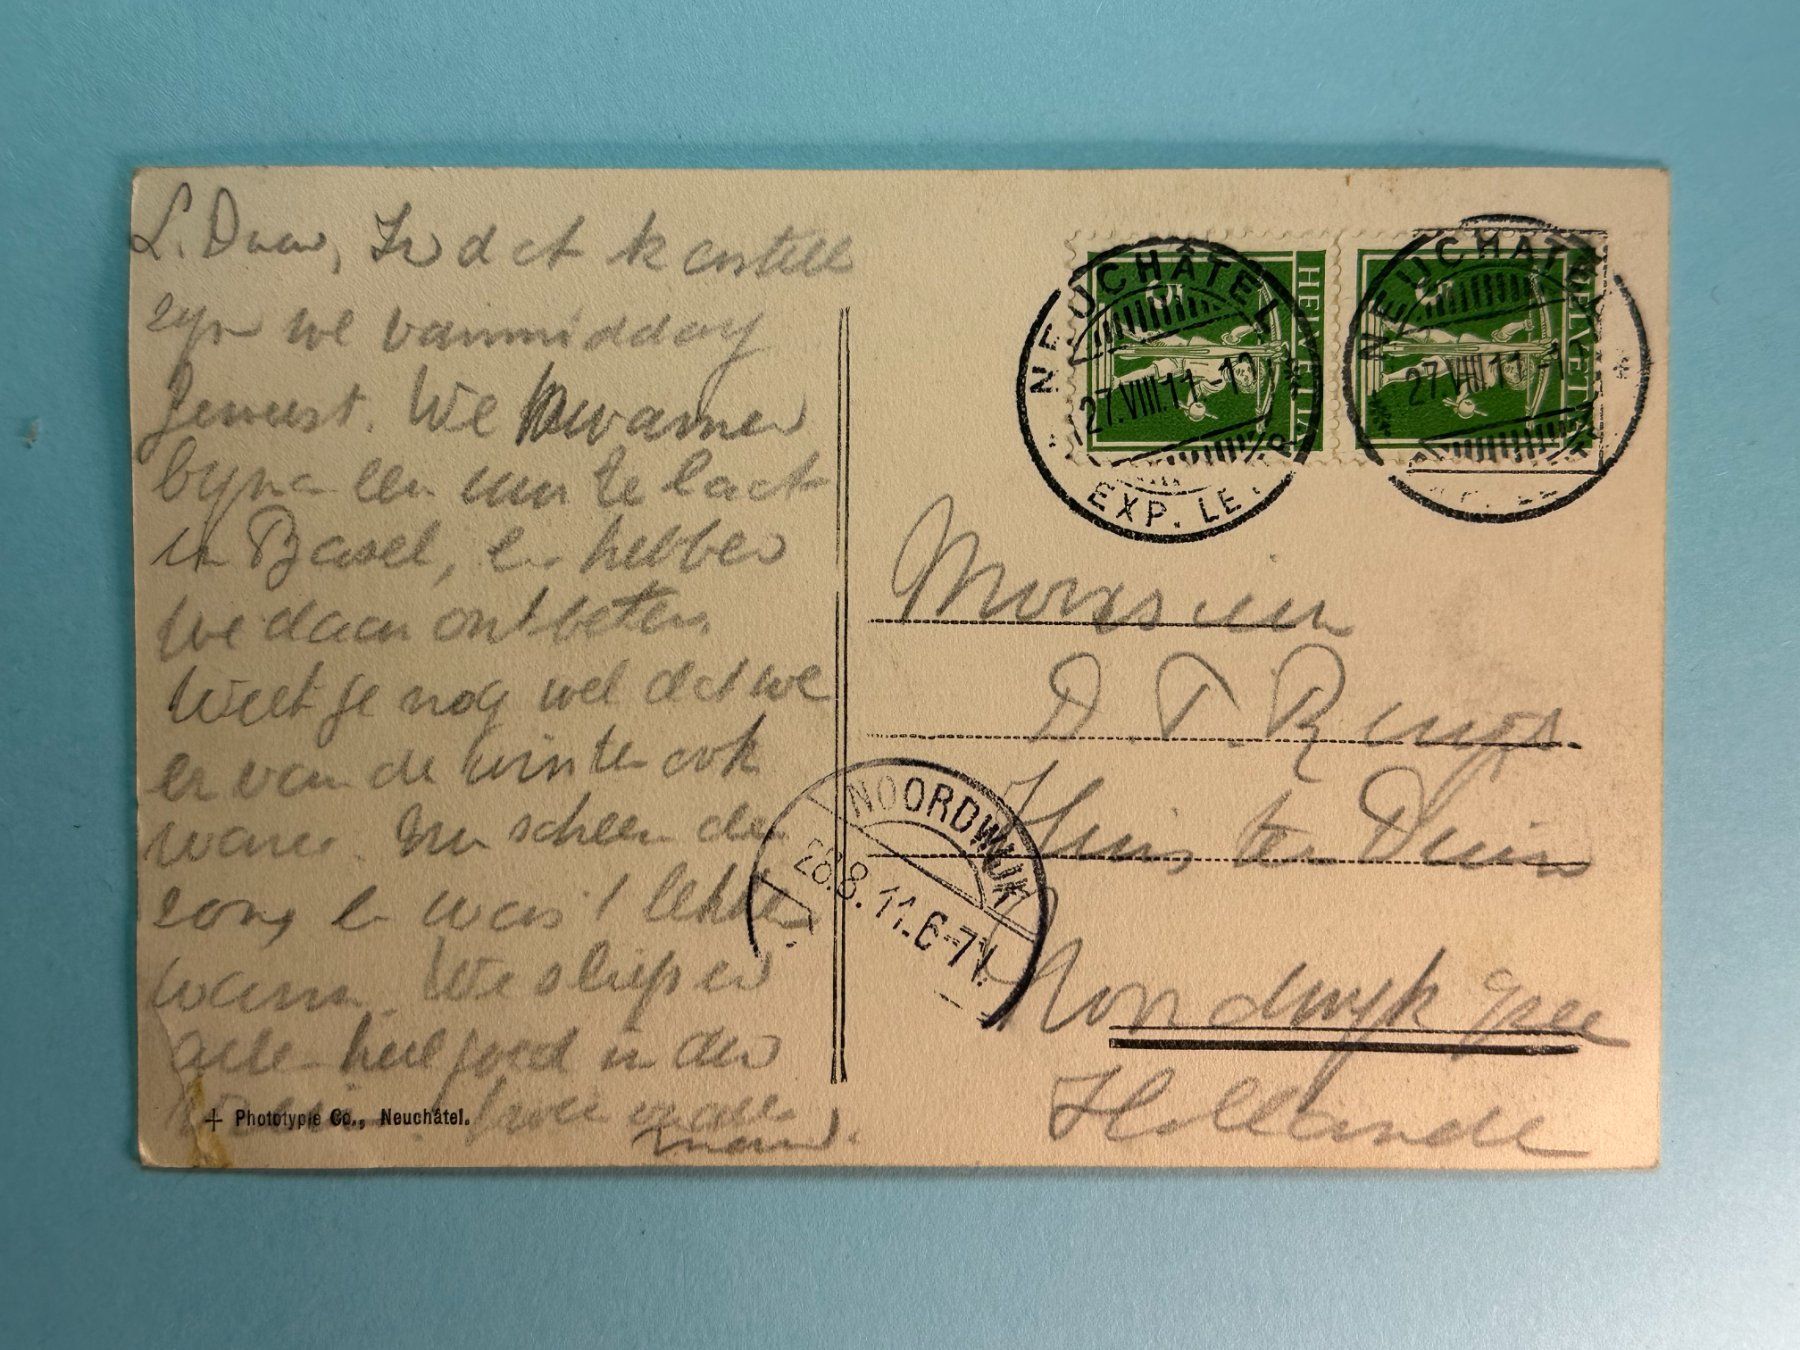 L. Daan, In dat kasteel
zijn we vanmiddag
geweest. We kwamen
bijna een uur te laat
in Basel, en hebben
we daar ontbeten.
Weet je nog wel dat we
er van de winter ook
waren. Nu scheen de
zon, en was 't lekker
warm. We sliepen
allen heel goed in den
trein.
+ Phototypie Co., Neuchâtel.
HELVETIA
HELVETIA
NEUCHÂTEL
27.VIII.11
EXP. LE
NEUCHÂTEL
27.VIII.11
Monsieur
D. T. Ruys.
Huis ter Duin
Noordwijk Zee
Hollande
NOORDWIJK
28.8.11.6-7V.